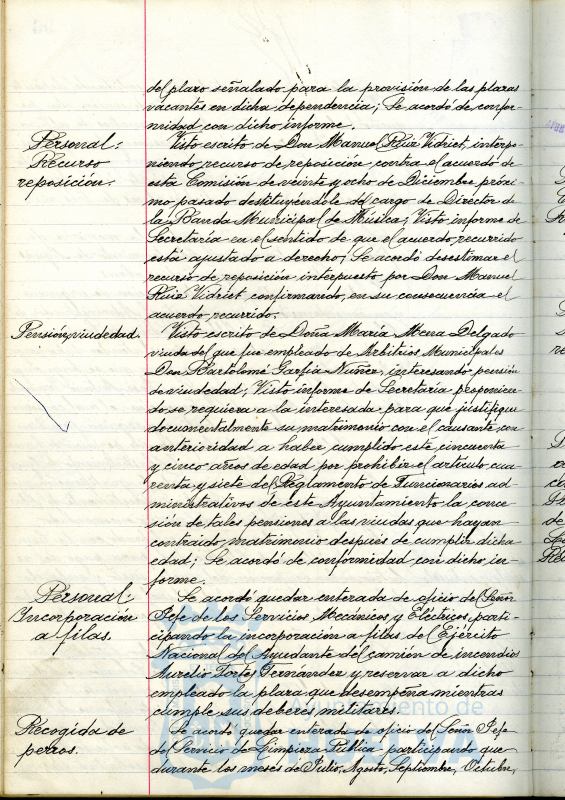 del plazo señalado para la provisión de las plazas
vacantes en dicha dependencia; Se acordó de confor-
midad con dicho informe.
Personal:
Recurso
reposición.
Visto escrito de Don Manuel Ruiz Vidriet, interpo-
niendo recurso de reposición contra el acuerdo de
esta Comisión de veinte y ocho de Diciembre próxi-
mo pasado destituyéndole del cargo de Director de
la Banda Municipal de Música; Visto informe de
Secretaría en el sentido de que el acuerdo recurrido
está ajustado a derecho; Se acordó desestimar el
recurso de reposición interpuesto por Don Manuel
Ruiz Vidriet, confirmando, en su consecuencia el
acuerdo recurrido.
Pensión viudedad.
Visto escrito de Doña María Mena Delgado
viuda del que fue empleado de Arbitrios Municipales
Don Bartolomé Garfia Núñez, interesando pensión
de viudedad; Visto informe de Secretaría proponien-
do se requiera a la interesada para que justifique
documentalmente su matrimonio con el causante con
anterioridad a haber cumplido este cincuenta
y cinco años de edad por prohibir el artículo cua-
renta y siete del Reglamento de Funcionarios ad-
ministrativos de este Ayuntamiento la conce-
sión de tales pensiones a las viudas que hayan
contraido matrimonio después de cumplir dicha
edad; Se acordó de conformidad con dicho in-
forme.
Personal:
Incorporación
a filas.
Se acordó quedar enterada de oficio del Señor
Jefe de los Servicios Mecánicos y Eléctricos, parti-
cipando la incorporación a filas del Ejército
Nacional del Ayudante del camión de incendios
Aurelio Fortes Fernández y reservar a dicho
empleado la plaza que desempeña mientras
cumple sus deberes militares.
Recogida de
perros.
Se acordó quedar enterada de oficio del Señor Jefe
del Servicio de Limpieza Pública participando que
durante los meses de Julio, Agosto, Septiembre, Octubre,
Ayuntamiento de